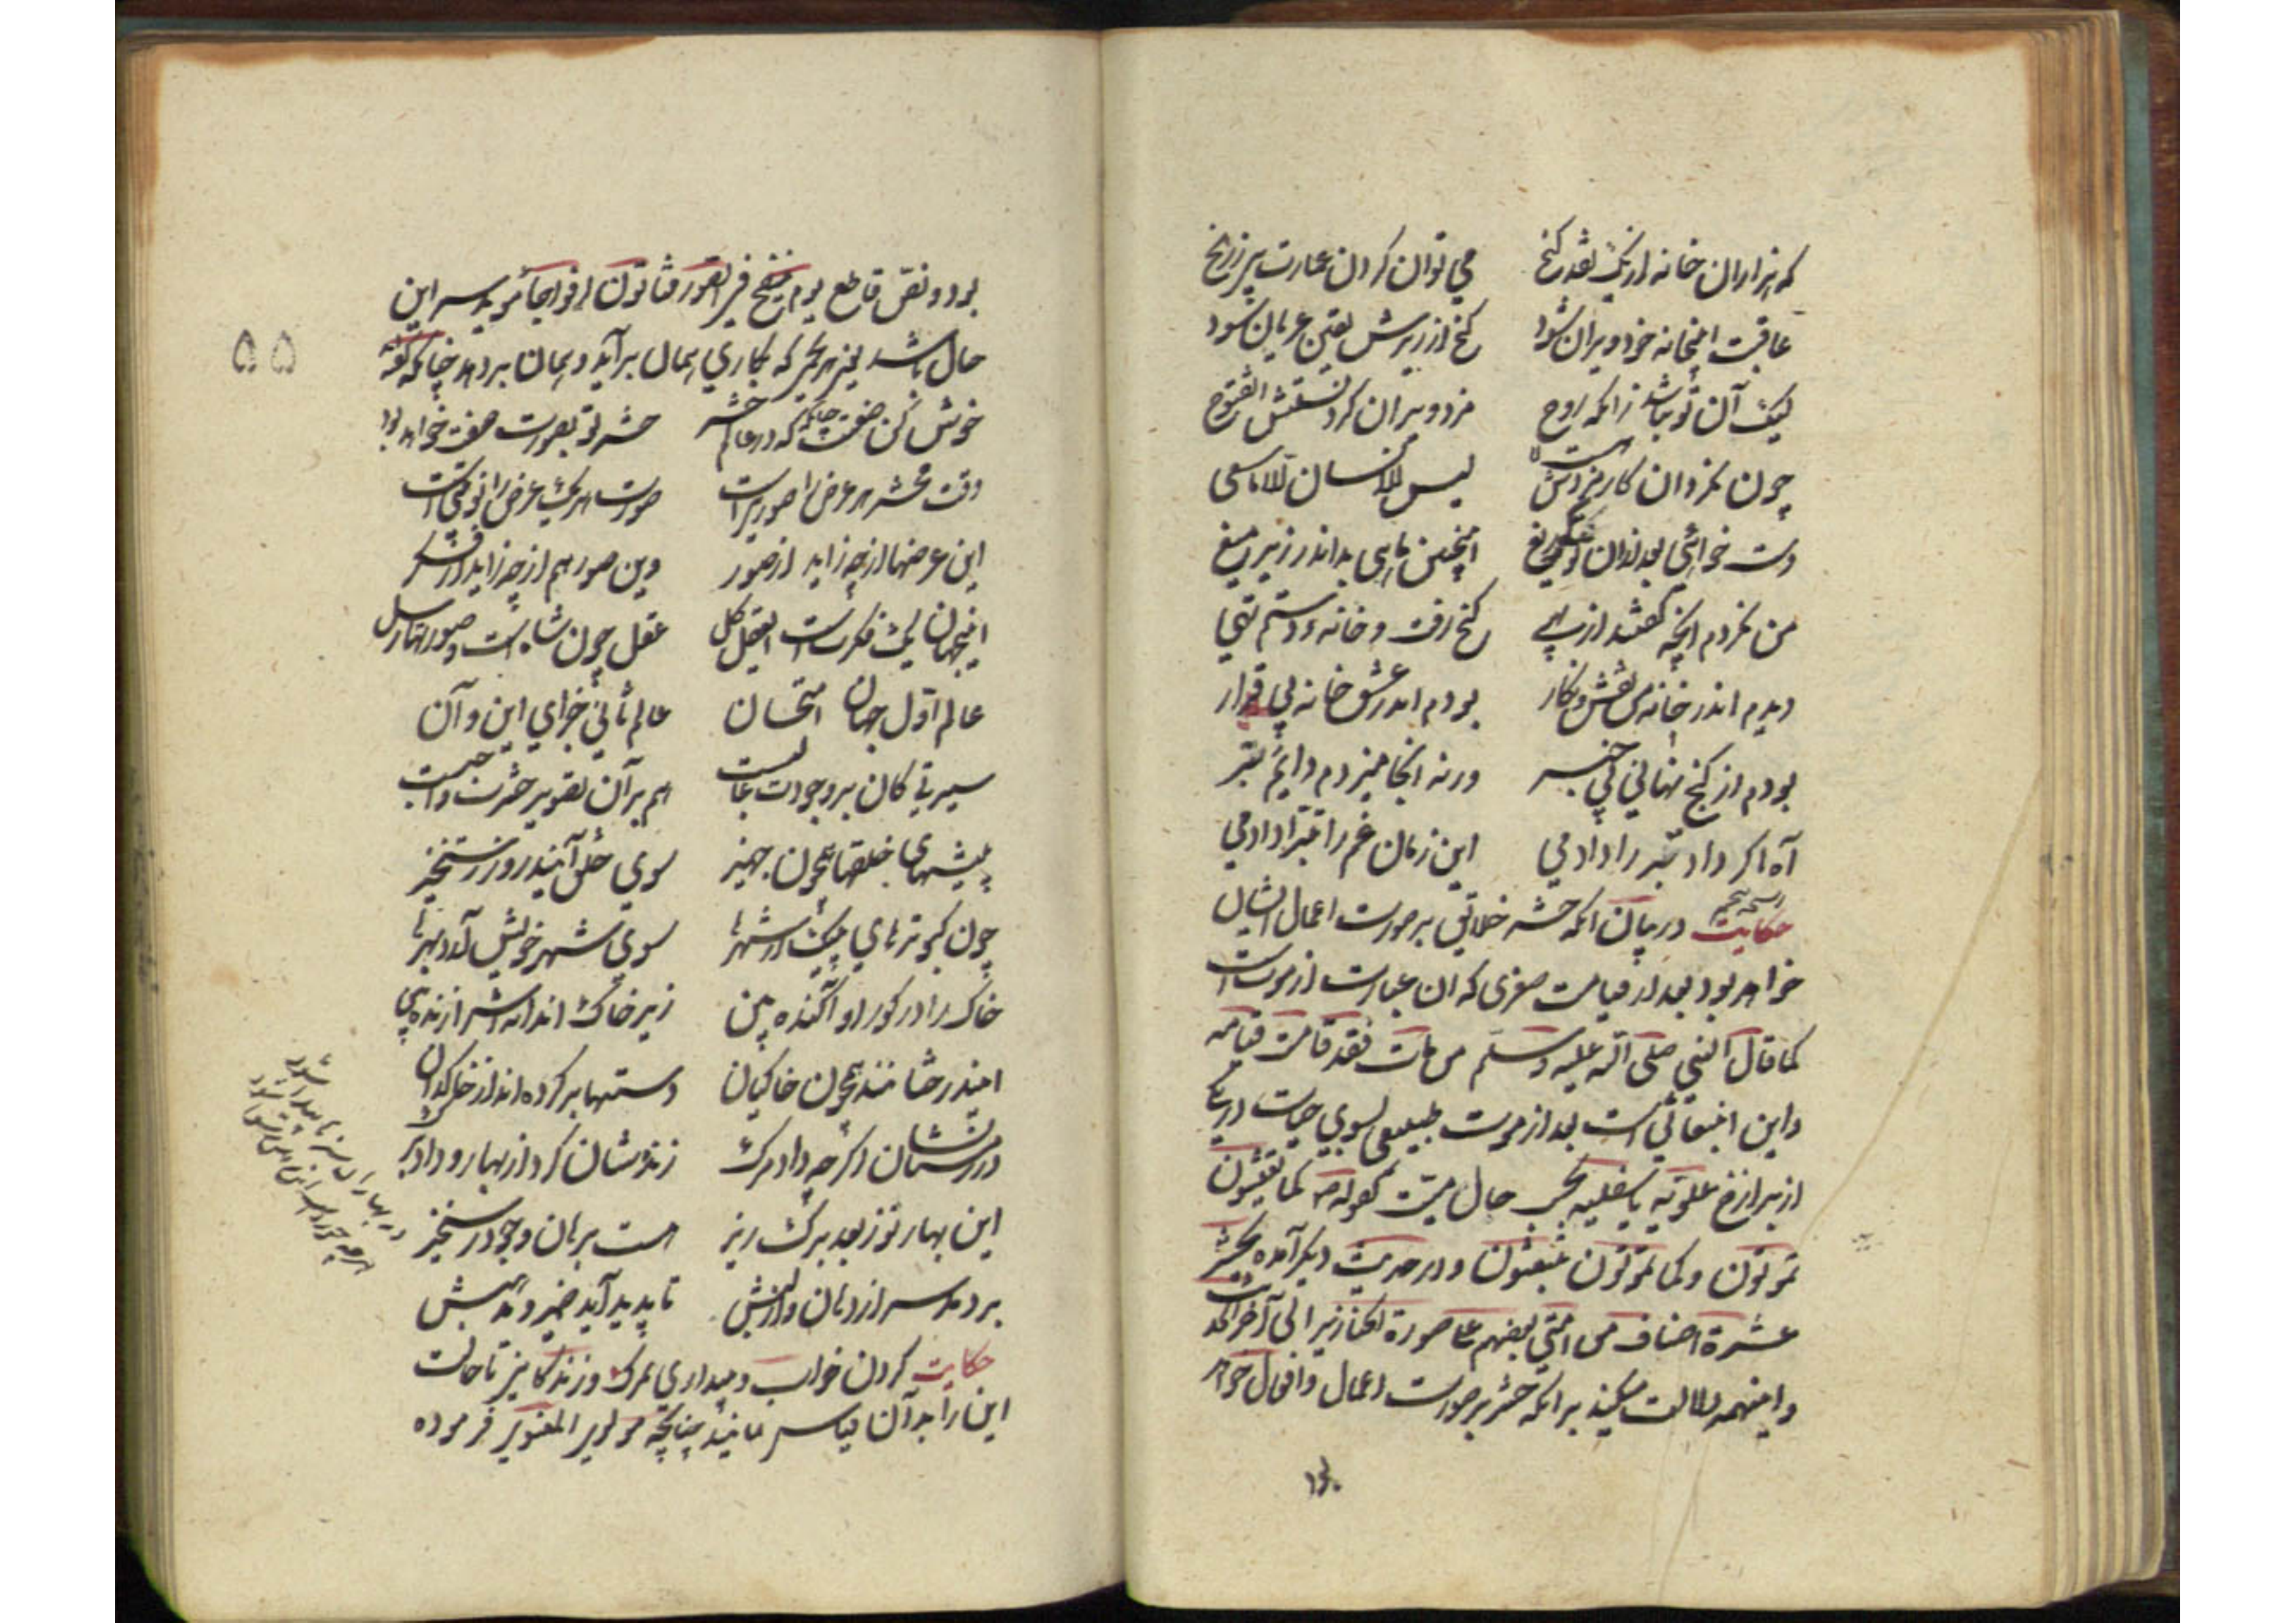 که هزاران خانه از یک نقد گنج می توان کردن عمارت بی ز رنج
عاقبت اینخانه خود ویران شود گنج از زیرش یقین عریان شود
لیک آن تو نباشد زانکه روح مزد ویران کردنستش آن فتوح
چون نکرد آن کار مزدش هست لا لیس للانسان الا ما سعی
دست خوائی بعد ازان تو کای دریغ اینچنین ماهی بد اندر زیر میغ
من نکردم آنچه گفتند از بهی گنج رفت و خانه و دستم تهی
دیدم اندر خانه من نقش و نکار بودم اندر عشق خانه بی قرار
بودم از گنج نهانی بی خبر ورنه آنجا میزدم دایم تبر
آه اگر داد تبر را دادمی این زمان غم را تبرا دادمی
حکایت در بیان آنکه حشر خلایق بر صورت اعمال ایشان
خواهد بود بعد از قیامت صغری که آن عبارت از موت است
کما قال النبی صلی الله علیه وسلم من مات فقد قامت قیامته
واین انبعاثی است بعد از موت طبیعی بسوی حیات در
از برازخ علویه یا سفلیه بحسب حال میت کقوله ص کما تعیشون
تموتون وکما تموتون تبعثون ودر حدیث دیگر آمده یحشر
عشرة اصناف من امتی بعضهم علی صورة الخنازیر الی آخر الحدیث
واینهمه دلالت میکند برانکه حشر بر صورت اعمال وافعال خواهد
بود
بود ونص قاطع یوم ینفخ فی الصور فتأتون افواجا مؤید سر این
حال باشد یعنی هر بحری که بکاری همان برآید و همان بر دهد چنانکه گفته
خوش کن صفت که در عالم حشر حشر تو بصورت صفت خواهد بود
وقت محشر هر عرض را صورتیست صورت هر یک عرض را نوبتی است
این عرضها از چه زاید از صور وین صور هم از چه زاید از فکر
اینجهان یک فکرتست از عقل کل عقل چون شاهست و صورتها رسل
عالم اول جهان امتحان عالم ثانی جزای این وآن
سیرتی کان بر وجودت غالبست هم بران تصویر حشرت واجبست
پیشهای خلقها همچون جهیز سوی خلق آیند روز رستخیز
چون کبوترهای پیک از شهرها سوی شهر خویش آرد بهرها
خاک را در کور او آکنده بین زیر خاک اندانه اش را زنده بین
دستها بر کرده اند از خاکدان
در زمستان اگر چه داد مرگ زنده شان کرد از بهار و داد برگ
این بهار نو ز بعد برگ ریز هست برهان وجود رستخیز
بر دمد سر از دهان و از لبش تا پدید آید ضمیر و مذهبش
حکایت کردن خواب و بیداری بمرگ و زندگانی تا حالت
این را بدآن قیاس نمایند چنانچه مولوی المعنوی فرموده
در بهاران سرها پیدا شود
هرچه خوردست این زمین رسوا شود
۵۵